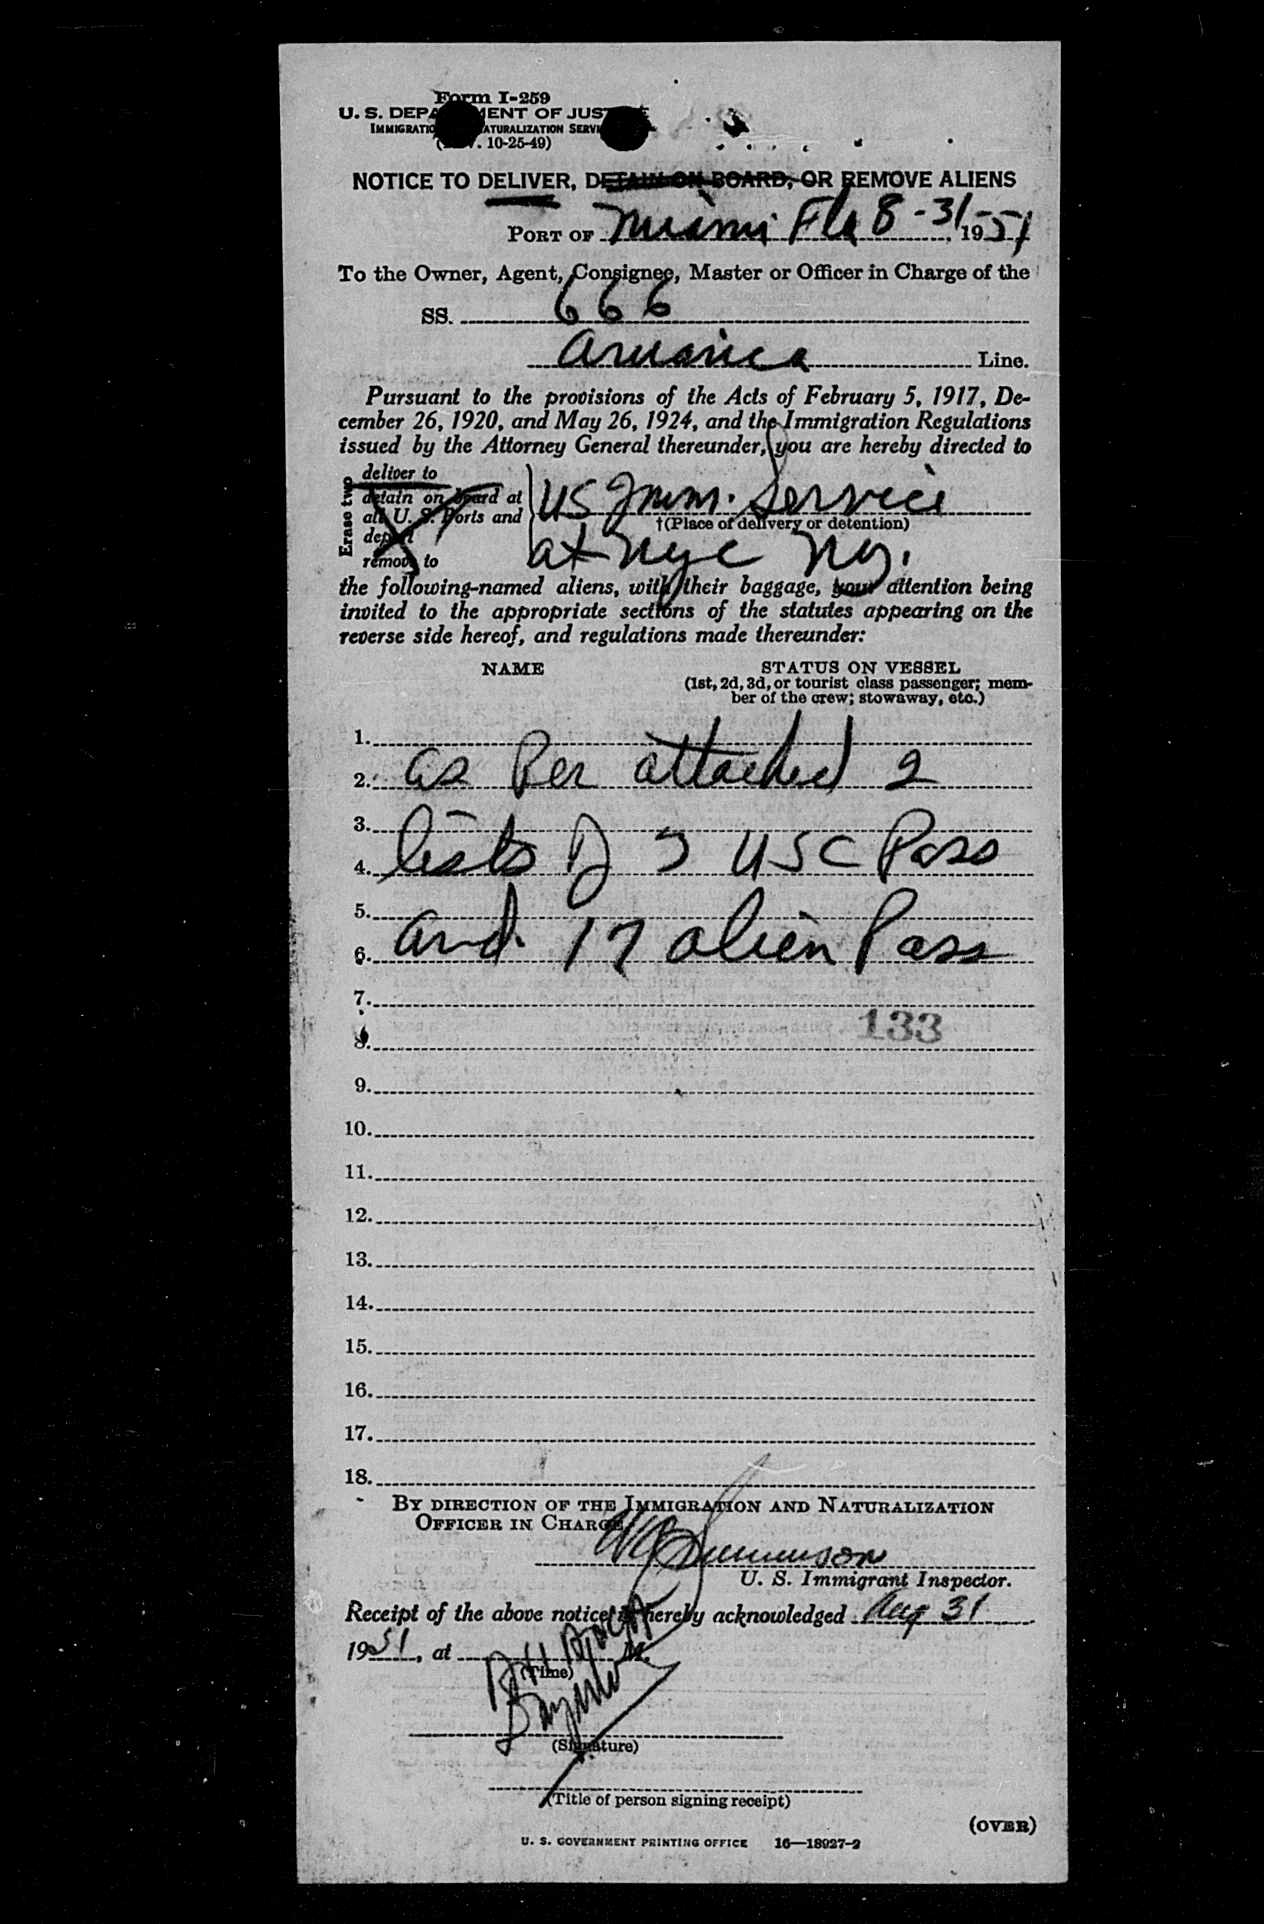 Form I-259
U. S. DEPARTMENT OF JUSTICE
IMMIGRATION AND NATURALIZATION SERVICE
(REV. 10-25-49)
NOTICE TO DELIVER, DETAIN ON BOARD, OR REMOVE ALIENS
PORT OF Miami Fla 8-31, 1951
To the Owner, Agent, Consignee, Master or Officer in Charge of the
SS. 666
Line.
Pursuant to the provisions of the Acts of February 5, 1917, De-
cember 26, 1920, and May 26, 1924, and the Immigration Regulations
issued by the Attorney General thereunder, you are hereby directed to
Erase two
deliver to
detain on board at
all U. S. Ports and
deport
remove to
US Imm. Service
†(Place of delivery or detention)
at NYC NY.
the following-named aliens, with their baggage, your attention being
invited to the appropriate sections of the statutes appearing on the
reverse side hereof, and regulations made thereunder:
NAME STATUS ON VESSEL
(1st, 2d, 3d, or tourist class passenger; mem-
ber of the crew; stowaway, etc.)
1.
2. as Per attached 2
3.
4. lists of 7 USC Pass
5.
6. and 17 alien Pass
7.
133
8.
9.
10.
11.
12.
13.
14.
15.
16.
17.
18.
BY DIRECTION OF THE IMMIGRATION AND NATURALIZATION
OFFICER IN CHARGE
U. S. Immigrant Inspector.
Receipt of the above notice is hereby acknowledged Aug 31
1951, at M.
(Time)
(Signature)
(Title of person signing receipt)
(OVER)
U. S. GOVERNMENT PRINTING OFFICE 16—18927-2